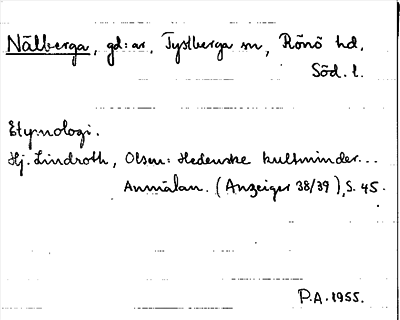 Nälberga, gd:ar, Tystberga sn, Rönö hd,
Söd. l.
Etymologi.
Hj. Lindroth, Olsen: Hedenske kultminder...
Anmälan. (Anzeiger 38/39), S. 45.
P.A. 1955.